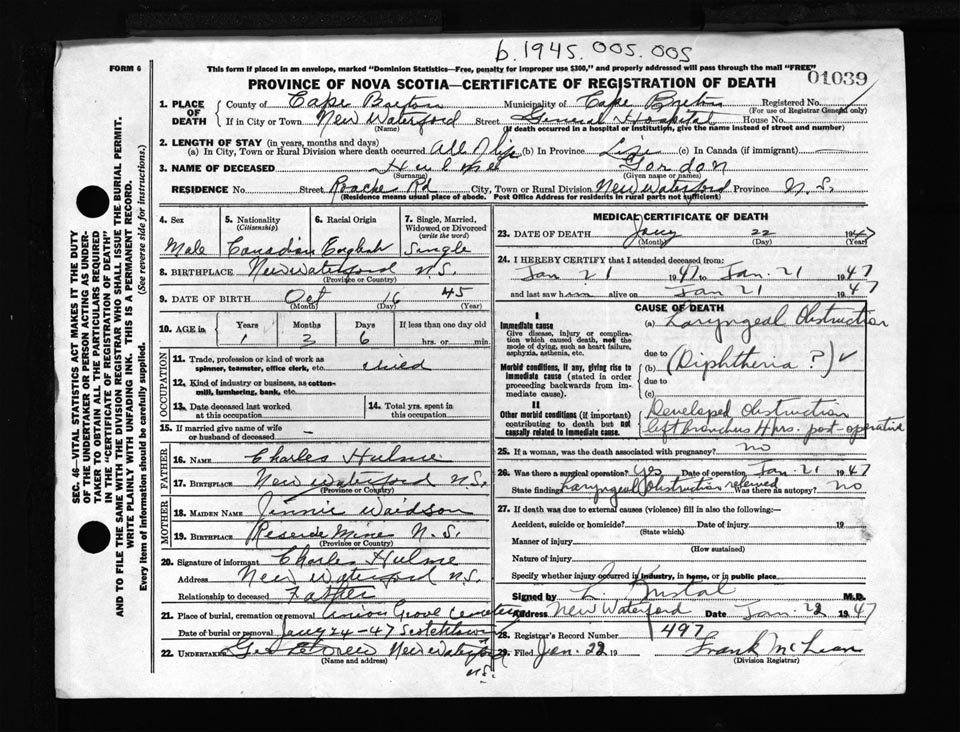 b. 1945. 005. 005
FORM 6
This form if placed in an envelope, marked "Dominion Statistics—Free, penalty for improper use $300," and properly addressed will pass through the mail "FREE"
PROVINCE OF NOVA SCOTIA—CERTIFICATE OF REGISTRATION OF DEATH
01039
SEC. 46—VITAL STATISTICS ACT MAKES IT THE DUTY
OF THE UNDERTAKER OR PERSON ACTING AS UNDER-
TAKER TO OBTAIN ALL THE PARTICULARS REQUIRED
IN THE "CERTIFICATE OF REGISTRATION OF DEATH"
AND TO FILE THE SAME WITH THE DIVISION REGISTRAR WHO SHALL ISSUE THE BURIAL PERMIT.
WRITE PLAINLY WITH UNFADING INK. THIS IS A PERMANENT RECORD.
Every item of information should be carefully supplied. (See reverse side for instructions.)
1. PLACE OF DEATH
County of Cape Breton Municipality of Cape Breton Registered No.
(For use of Registrar General only)
If in City or Town New Waterford Street General Hospital House No.
(Name) (If death occurred in a hospital or institution, give the name instead of street and number)
2. LENGTH OF STAY (in years, months and days)
(a) In City, Town or Rural Division where death occurred All life (b) In Province Life (c) In Canada (if immigrant) —
3. NAME OF DECEASED Hulme Gordon
(Surname) (Given name or names)
RESIDENCE No. Street Roaches Rd City, Town or Rural Division New Waterford Province N.S.
(Residence means usual place of abode. Post Office Address for residents in rural parts not sufficient)
4. Sex
Male
5. Nationality
(Citizenship)
Canadian
6. Racial Origin
English
7. Single, Married,
Widowed or Divorced
(write the word)
Single
8. BIRTHPLACE New Waterford N.S.
(Province or Country)
9. DATE OF BIRTH Oct 16 45
(Month) (Day) (Year)
10. AGE in
Years Months Days If less than one day old
1 3 6 hrs. or min.
OCCUPATION
11. Trade, profession or kind of work as
spinner, teamster, office clerk, etc. child
12. Kind of industry or business, as cotton-
mill, lumbering, bank, etc.
13. Date deceased last worked
at this occupation
14. Total yrs. spent in
this occupation
15. If married give name of wife
or husband of deceased —
FATHER
16. NAME Charles Hulme
17. BIRTHPLACE New Waterford N.S.
(Province or Country)
MOTHER
18. MAIDEN NAME Jinnie
19. BIRTHPLACE Reserve Mines N.S.
(Province or Country)
20. Signature of informant Charles Hulme
Address New Waterford N.S.
Relationship to deceased Father
21. Place of burial, cremation or removal Union Grove Cemetery
Date of burial or removal Jany 24-47 Scotchtown
22. UNDERTAKER New Waterford
(Name and address)
N.S.
MEDICAL CERTIFICATE OF DEATH
23. DATE OF DEATH Jany 22 1947
(Month) (Day) (Year)
24. I HEREBY CERTIFY that I attended deceased from:
Jan 21 1947 to Jan. 21 1947
and last saw h alive on Jan 21 1947
CAUSE OF DEATH
I
Immediate cause
Give disease, injury or complica-
tion which caused death, not the
mode of dying, such as heart failure,
asphyxia, asthenia, etc.
(a) Laryngeal Obstruction
due to
Morbid conditions, if any, giving rise to
immediate cause (stated in order
proceeding backwards from im-
mediate cause).
(b) (Diphtheria ?) ✓
due to
(c)
II
Other morbid conditions (if important)
contributing to death but not
causally related to immediate cause.
Developed obstruction
left bronchus 4 hrs. post-operative
25. If a woman, was the death associated with pregnancy? no
26. Was there a surgical operation? yes Date of operation Jan 21 1947
State findings Laryngeal Obstruction relieved Was there an autopsy? no
27. If death was due to external causes (violence) fill in also the following:—
Accident, suicide or homicide? Date of injury 19
(State which)
Manner of injury
(How sustained)
Nature of injury
Specify whether injury occurred in industry, in home, or in public place
Signed by M.D.
Address New Waterford Date Jan. 22 1947
28. Registrar's Record Number 497
29. Filed Jan. 22 19 Frank McLean
(Division Registrar)